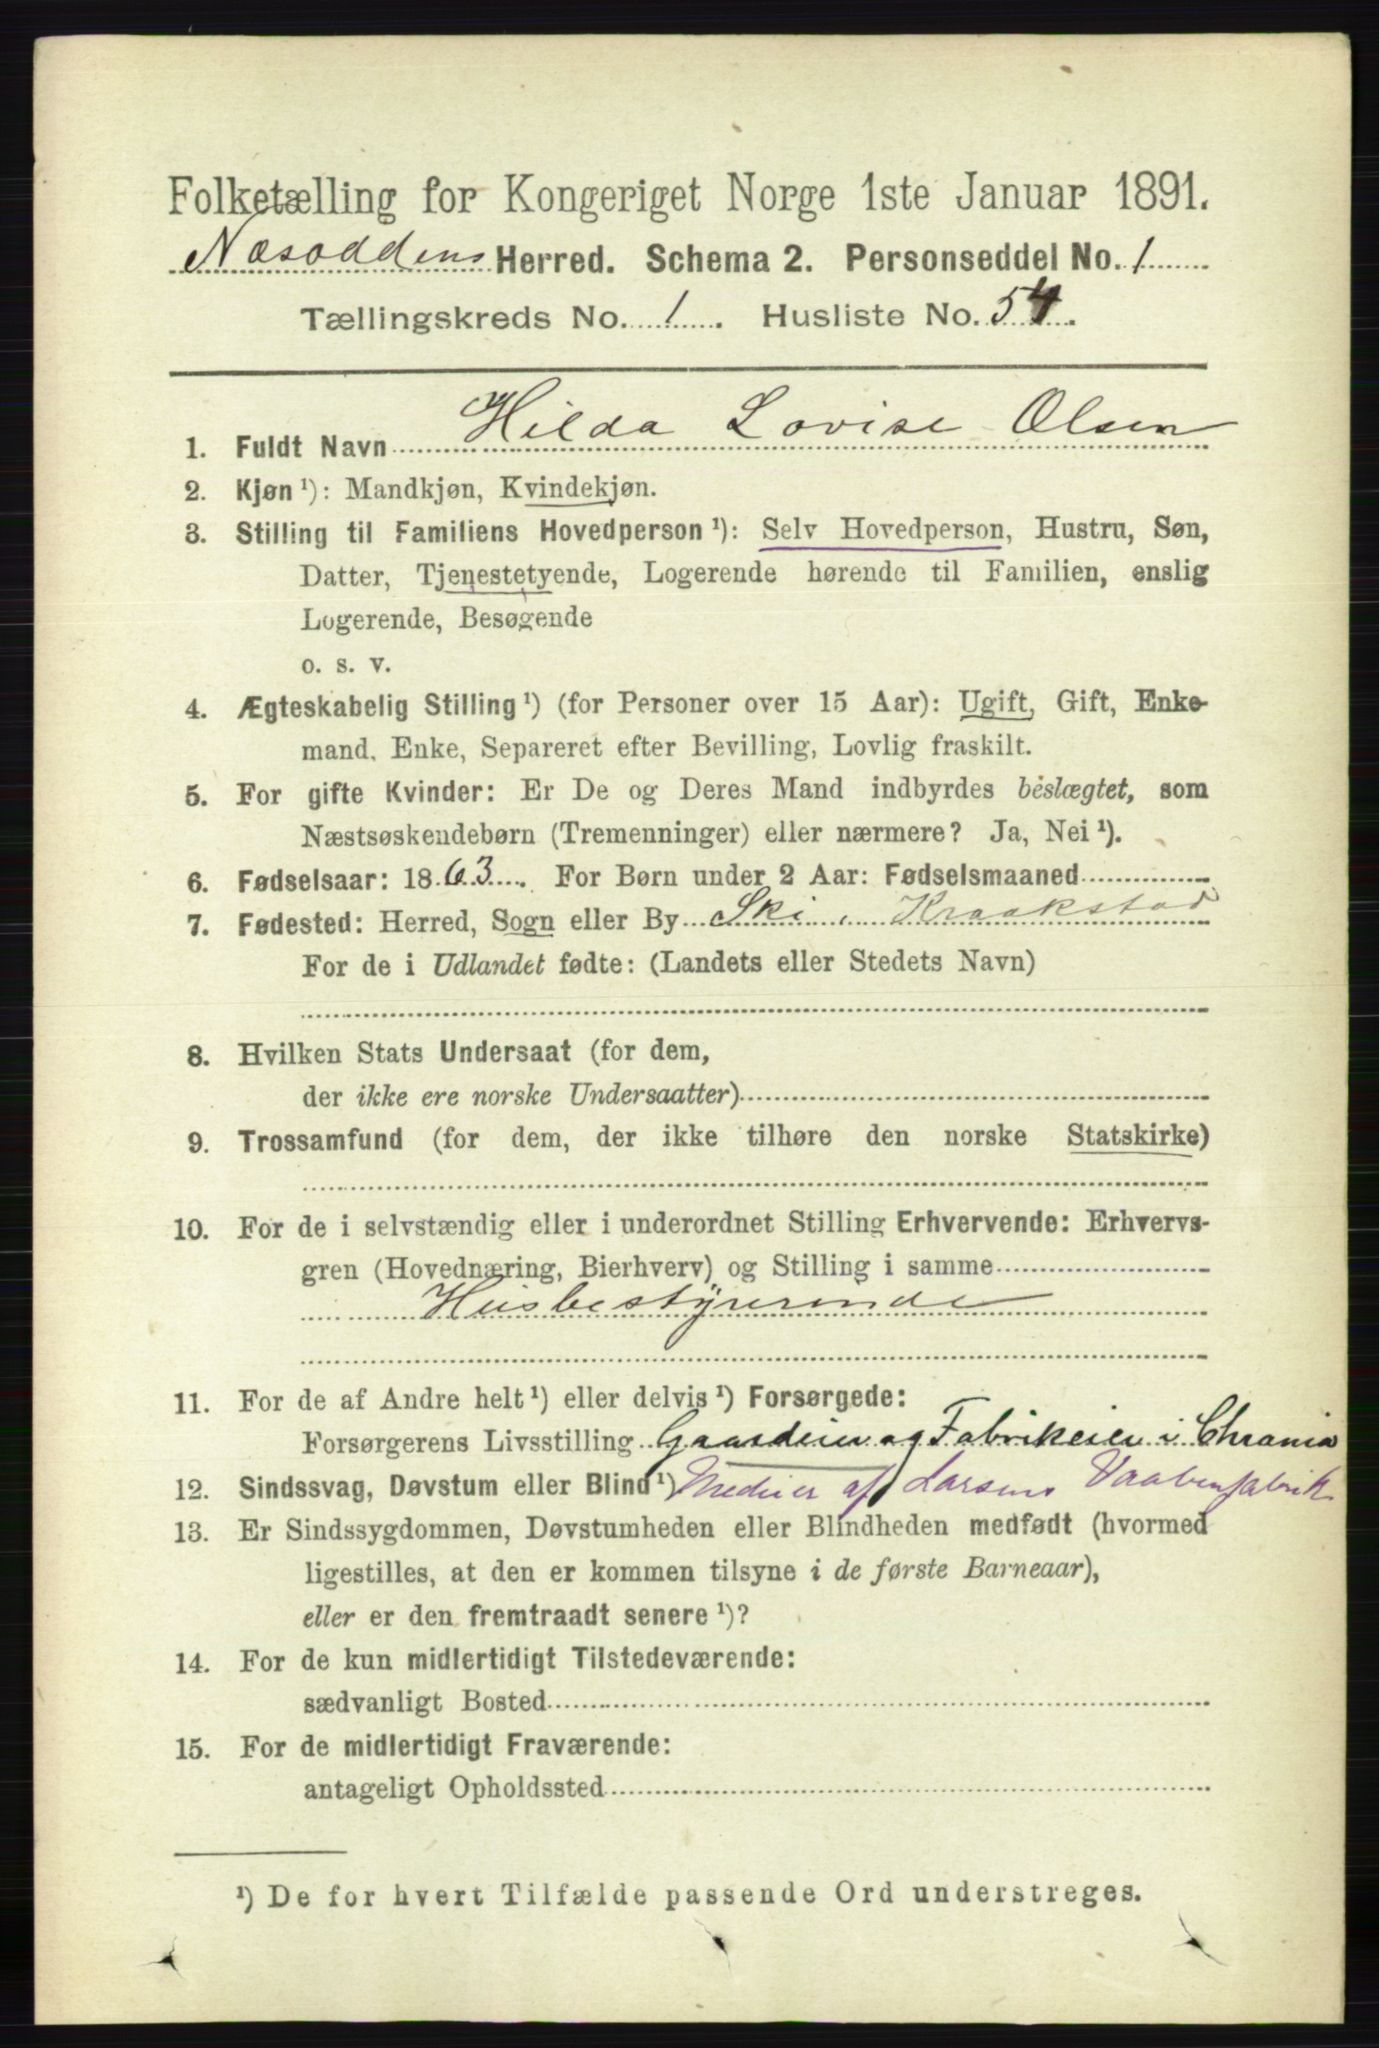 Folketælling for Kongeriget Norge 1ste Januar 1891.
Næsoddens Herred. Schema 2. Personseddel No. 1
Tællingskreds No. 1. Husliste No. 54.
1. Fuldt Navn Hilda Lovise Olsen
2. Kjøn ¹): Mandkjøn, Kvindekjøn.
3. Stilling til Familiens Hovedperson ¹): Selv Hovedperson, Hustru, Søn,
Datter, Tjenestetyende, Logerende hørende til Familien, enslig
Logerende, Besøgende
o. s. v.
4. Ægteskabelig Stilling ¹) (for Personer over 15 Aar): Ugift, Gift, Enke-
mand, Enke, Separeret efter Bevilling, Lovlig fraskilt.
5. For gifte Kvinder: Er De og Deres Mand indbyrdes beslægtet, som
Næstsøskendebørn (Tremenninger) eller nærmere? Ja, Nei ¹).
6. Fødselsaar: 1863. For Børn under 2 Aar: Fødselsmaaned
7. Fødested: Herred, Sogn eller By Ski, Kraakstad
For de i Udlandet fødte: (Landets eller Stedets Navn)
8. Hvilken Stats Undersaat (for dem,
der ikke ere norske Undersaatter)
9. Trossamfund (for dem, der ikke tilhøre den norske Statskirke)
10. For de i selvstændig eller i underordnet Stilling Erhvervende: Erhvervs-
gren (Hovednæring, Bierhverv) og Stilling i samme
Husbestyrerinde
11. For de af Andre helt ¹) eller delvis ¹) Forsørgede:
Forsørgerens Livsstilling Gaardeier og Fabrikeier i Chrania
12. Sindssvag, Døvstum eller Blind ¹) Medeier af Larsens Vaabenfabrik
13. Er Sindssygdommen, Døvstumheden eller Blindheden medfødt (hvormed
ligestilles, at den er kommen tilsyne i de første Barneaar),
eller er den fremtraadt senere ¹)?
14. For de kun midlertidigt Tilstedeværende:
sædvanligt Bosted
15. For de midlertidigt Fraværende:
antageligt Opholdssted
¹) De for hvert Tilfælde passende Ord understreges.